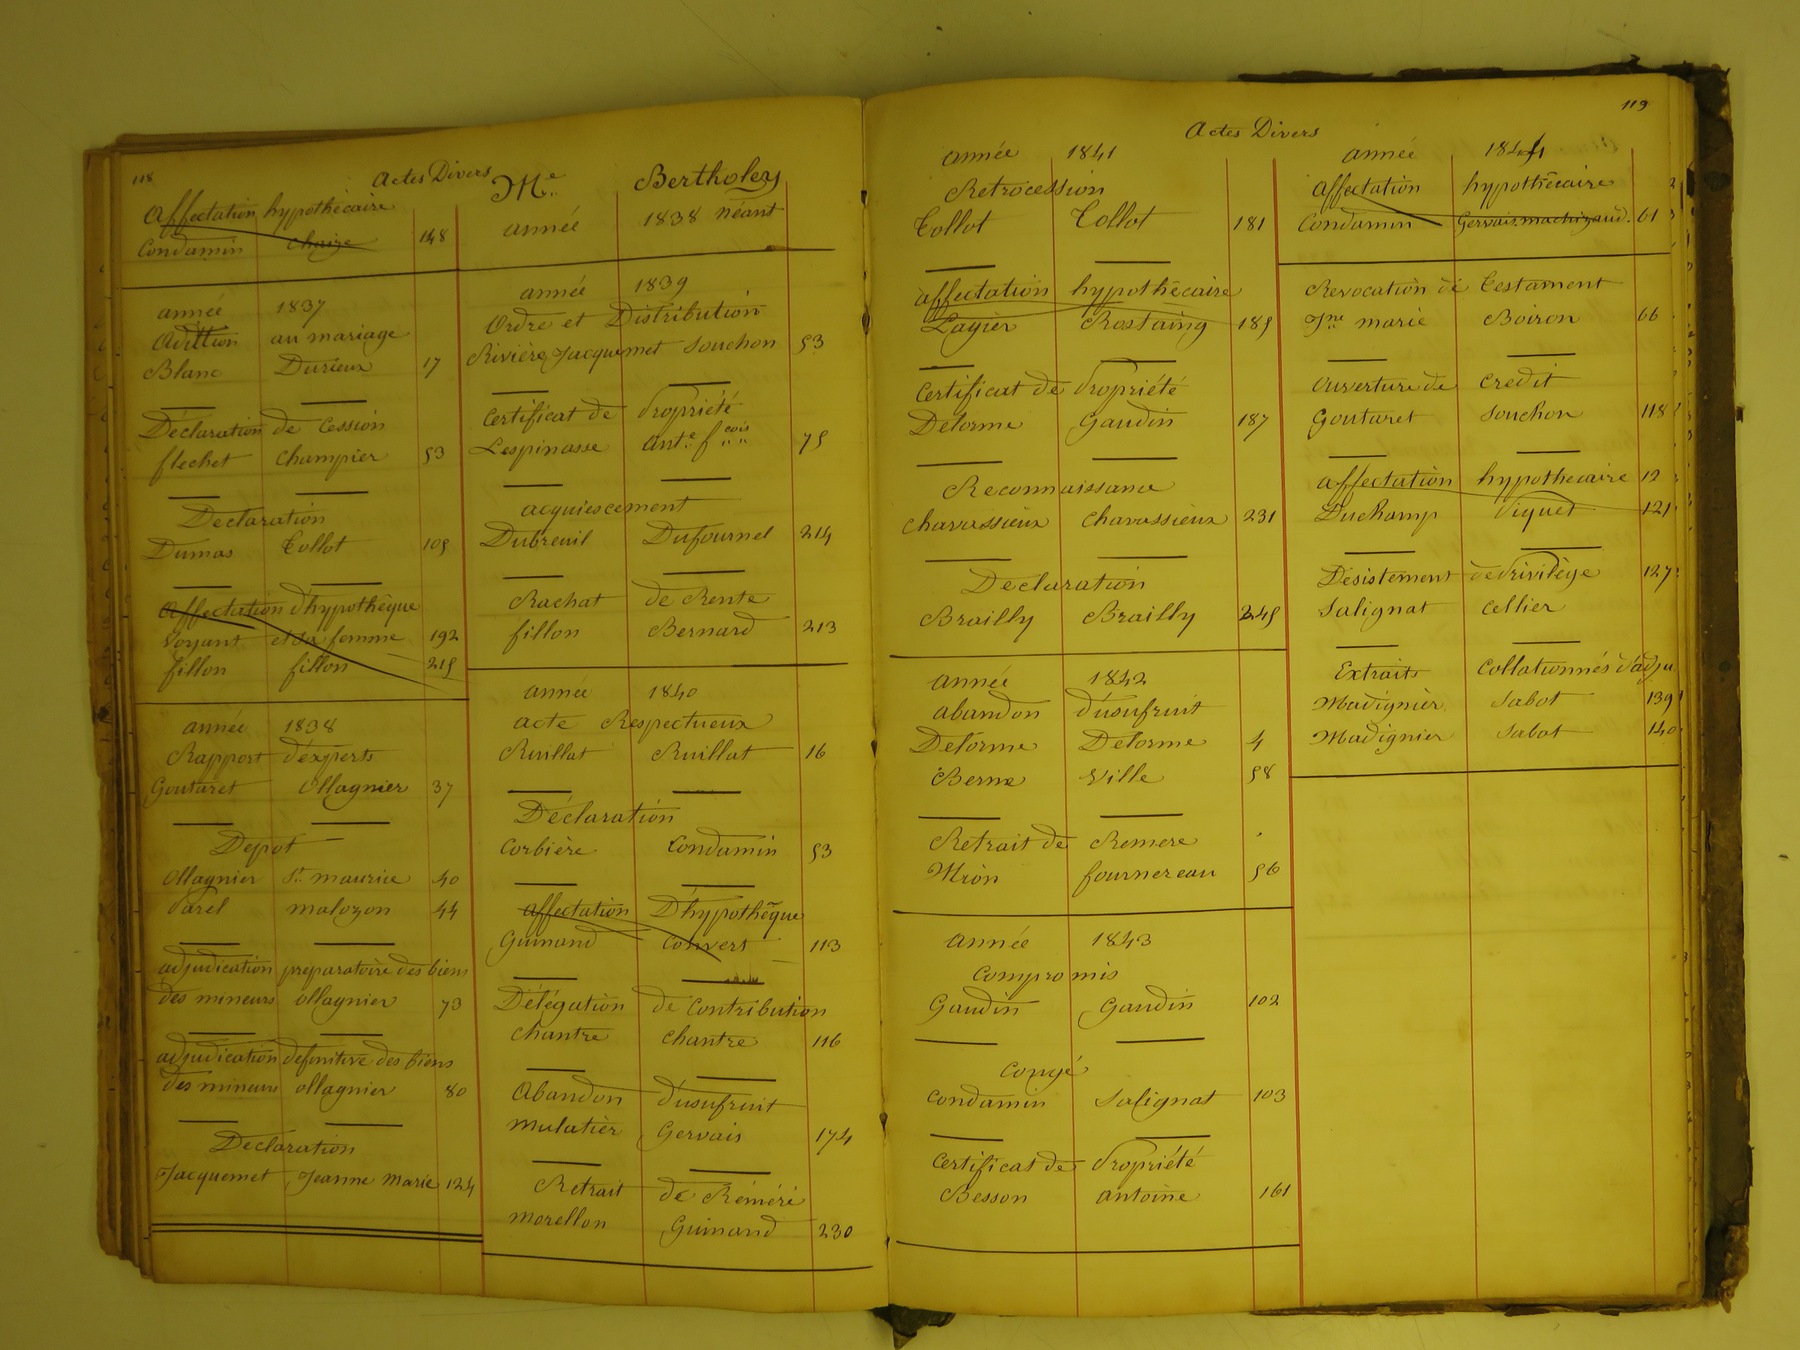 118
Actes Divers
Affectation hypothécaire
Condamin Chaize 148
année 1837
Adition au mariage
Blanc Durieux 17
Déclaration de Cession
flechet Champier 53
Declaration
Dumas Collot 105
Affectation d'hypothêque
Voyant et sa femme 192
fillon fillon 215
année 1838
Rapport d'éxperts
Goutaret Ollagnier 37
Depot
Ollagnier St. maurice 40
Parel malozon 44
adjudication préparatoire des biens
des mineurs ollagnier 73
adjudication définitive des biens
des mineurs ollagnier 80
Declaration
Jacquemet Jeanne Marie 124
Me. Bertholey
année 1838 néant
année 1839
Ordre et Distribution
Rivière Jacquemet Souchon 53
Certificat de Propriété
Lespinasse Ant.e fcois 75
acquiescement
Dubreuil Dufournel 214
Rachat de Rente
fillon Bernard 213
année 1840
acte Respectueux
Ruillat Ruillat 16
Déclaration
Corbière Condamin 53
affectation D'hypothêque
Guinand Convers 113
Délégation de Contribution
Chantre Chantre 116
Abandon d'usufruit
Mulatier Gervais 174
Retrait de Réméré
Morellon Guinand 230
119
Actes Divers
année 1841
Retrocession
Collot Collot 181
affectation hypothécaire
Lagier Rostaing 185
Certificat de Propriété
Delorme Gaudin 187
Reconnaissance
Chavassieux Chavassieux 231
Declaration
Brailly Brailly 245
année 1842
abandon d'usufruit
Delorme Delorme 4
Berne Ville 58
Retrait de Remere
Mion fournereau 56
année 1843
Compromis
Gaudin Gaudin 102
Congé
Condamin Salignat 103
Certificat de Propriété
Besson antoine 161
année 1844
affectation hypothécaire
Condamin Gervais machizaud. 61
Revocation de Testament
Jne marie Boiron 66
Ouverture de Credit
Goutaret Souchon 118
affectation hypothecaire 12
Duchamp Viguet 121
Désistement de Privilège 127
Salignat Cellier
Extraits Collationnés d'adju
Madignier Sabot 139
Madignier Sabot 140